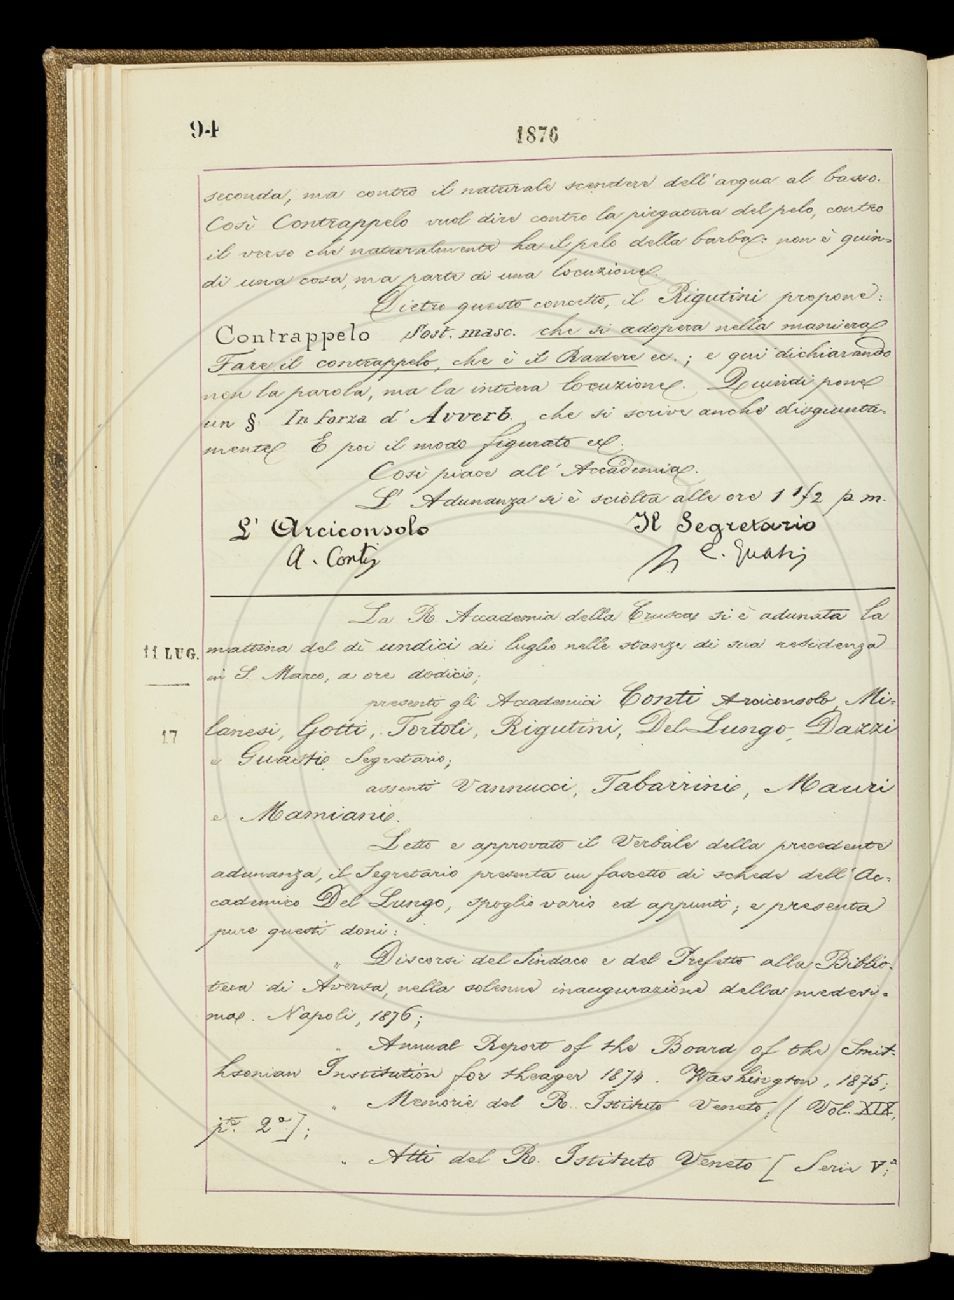 94
1876
seconda, ma contro il naturale scendere dell'acqua al basso.
Così Contrappelo vuol dire contro la piegatura del pelo, contro
il verso che naturalmente ha il pelo della barba: non è quin-
di una cosa, ma parte di una locuzione.
Dietro questo concetto, il Rigutini propone:
Contrappelo Sost. masc. che si adopera nella maniera
Fare il contrappelo, che è il Radere ec.; e qui dichiarando
non la parola, ma la intiera locuzione. Quindi pone
un § In forza d'Avverb. che si scrive anche disgiunta-
mente. E poi il modo figurato ec.
Così piace all'Accademia.
L'Adunanza si è sciolta alle ore 1 1/2 p. m.
L'Arciconsolo Il Segretario
A. Conti C. Guasti
La R. Accademia della Crusca si è adunata la
11 LUG. mattina del dì undici di luglio nelle stanze di sua residenza
in S. Marco, a ore dodici;
presenti gli Accademici Conti Arciconsolo, Mi-
17 lanesi, Gotti, Tortoli, Rigutini, Del Lungo, Dazzi
e Guasti Segretario;
assenti Vannucci, Tabarrini, Mauri
e Mamiani.
Letto e approvato il Verbale della precedente
adunanza, il Segretario presenta un fascetto di schede dell'Ac-
cademico Del Lungo, spoglio vario ed appunti; e presenta
pure questi doni:
" Discorsi del Sindaco e del Prefetto alla Biblio-
teca di Aversa, nella solenne inaugurazione della medesi-
ma. Napoli, 1876;
" Annual Report of the Board of the Smit-
hsonian Institution for theager 1874. Washington, 1875;
" Memorie del R. Istituto Veneto, (Vol. XIX,
pte. 2a.];
" Atti del R. Istituto Veneto [Serie Va;